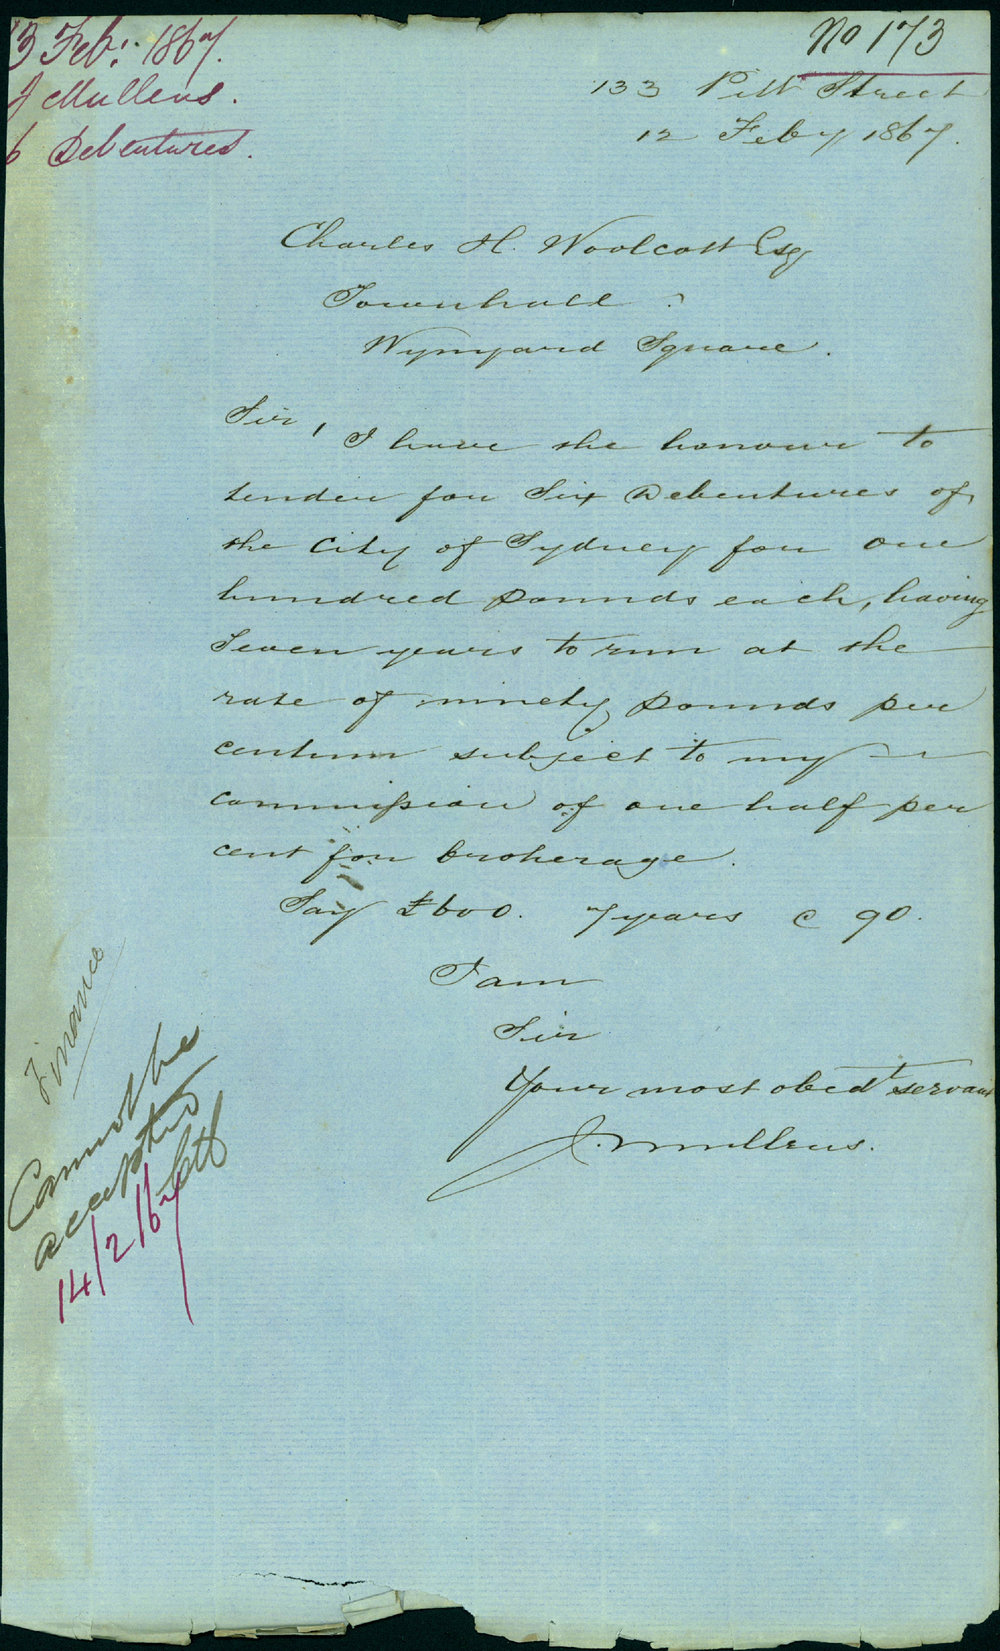 13 Feb: 1867.
J Mullens.
6 Debentures.
No 173
133 Pitt Street
12 Feby 1867.
Charles H. Woolcott Esq
Townhall
Wynyard Square.
Sir,
I have the honour to
tender for Six Debentures of
the City of Sydney for one
hundred pounds each, having
Seven years to run at the
rate of ninety pounds per
centum subject to my
commission of one half per
cent for brokerage.
Say £600. 7 years @ 90.
I am
Sir
Your most obedt servant
J. Mullens.
Finance
Cannot be
accepted
14/2/67